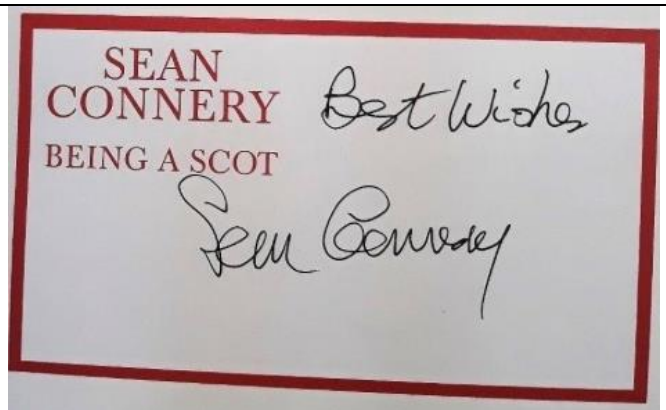 SEAN
CONNERY
BEING A SCOT
Best Wishes
Sean Connery